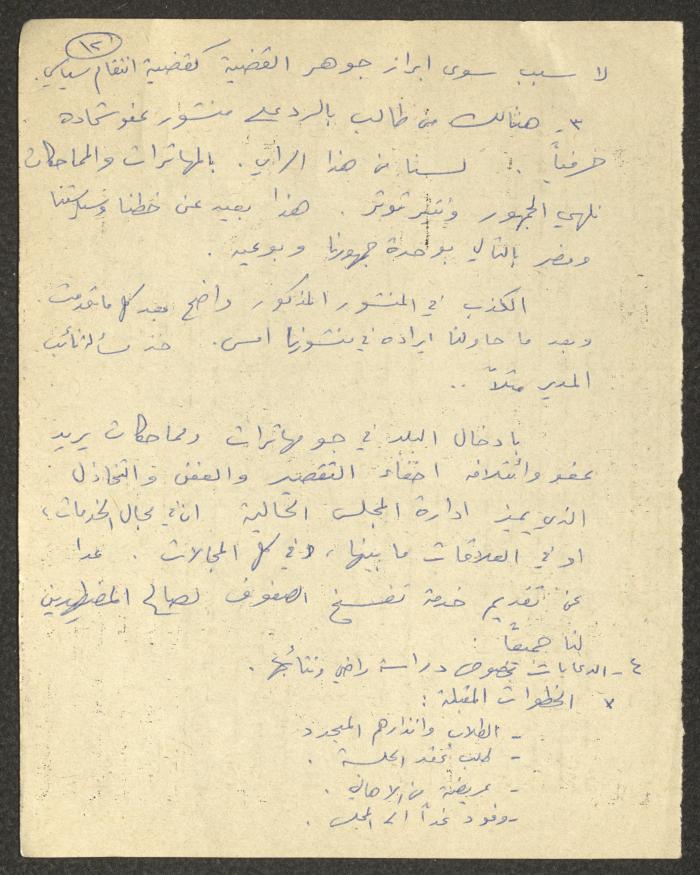 ١٢
لا سبب سوى ابراز جوهر القضية كقضية انتقام سياسي.
٣- هنالك من طالب بالرد على منشور عفو شحاده
حرفياً. لسنا من هذا الرأي. بالمهاترات والمماحكات
نلهي الجمهور و توتر. هذا بعيد عن خطنا وسياستنا
ومضر بالتالي بوحدة جمهورنا وبوعيه.
الكذب في المنشور المذكور واضح بعد كل ما تقدمت
وبعد ما حاولنا ايراده في منشورنا امس. خذ مسألة نائب
المدير مثلاً ..
بادخال البلد في جو مهاترات ومماحكات يريد
عفو وائتلافه اخفاء التقصير والعفن والتخاذل
الذي يميز ادارة المجلس الحالية ان في مجال الخدمات،
او في العلاقات ما بينها، وفي كل المجالات. عدا
عن تقديم خدمة تفسخ الصفوف لصالح المضطهدين
لنا جميعاً.
٤- الدعايات بخصوص دراسة راضي ونتائجها.
x الخطوات المقبلة:
- الطلاب وانذارهم المجدد
- طلب عقد الجلسة.
- عريضة من الاهالي.
- وفود غداً الى المجلس.